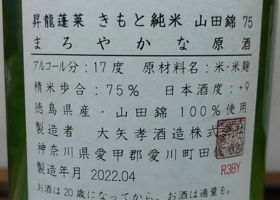 昇龍蓬莱 きもと純米 山田錦 75
まろやかな原酒
アルコール分:17度 原材料名:米・米麹
精米歩合:75% 日本酒度:+9
徳島県産・山田錦100%使用
製造者 大矢孝酒造株式
神奈川県愛甲郡愛川町田
製造年月 2022.04 R3BY
お酒は20歳になってから。お酒は適量を。